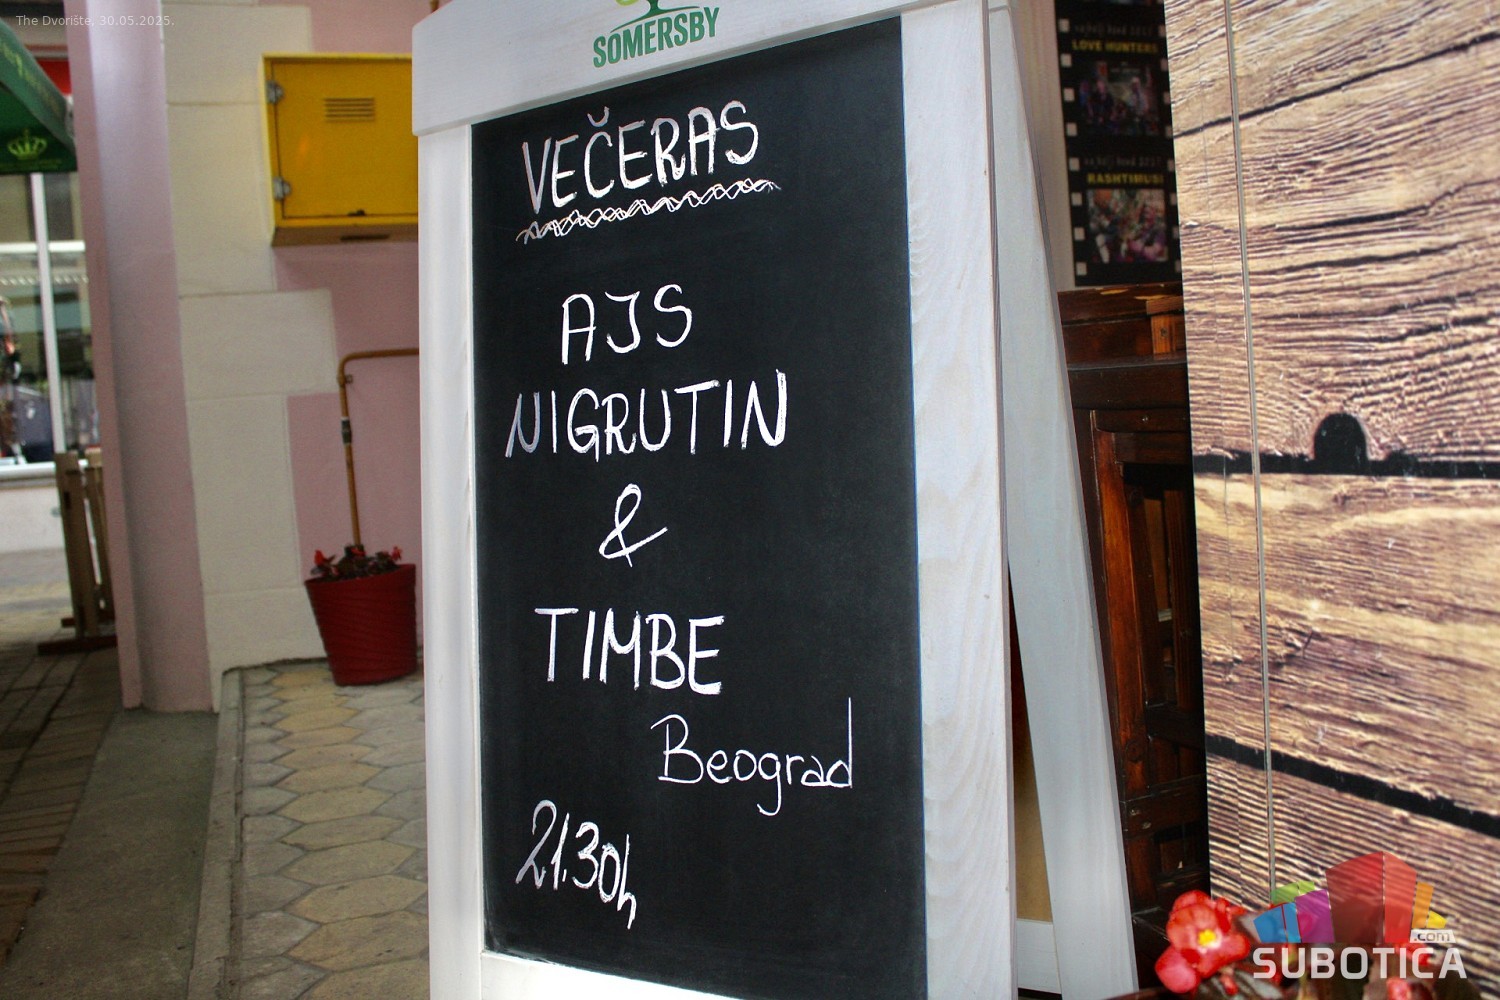 The Dvorište, 30.05.2025.
SOMERSBY
VEČERAS
AJS
NIGRUTIN
&
TIMBE
Beograd
21.30h
LOVE HUNTERS
RASHTIMUSI
.com
SUBOTICA